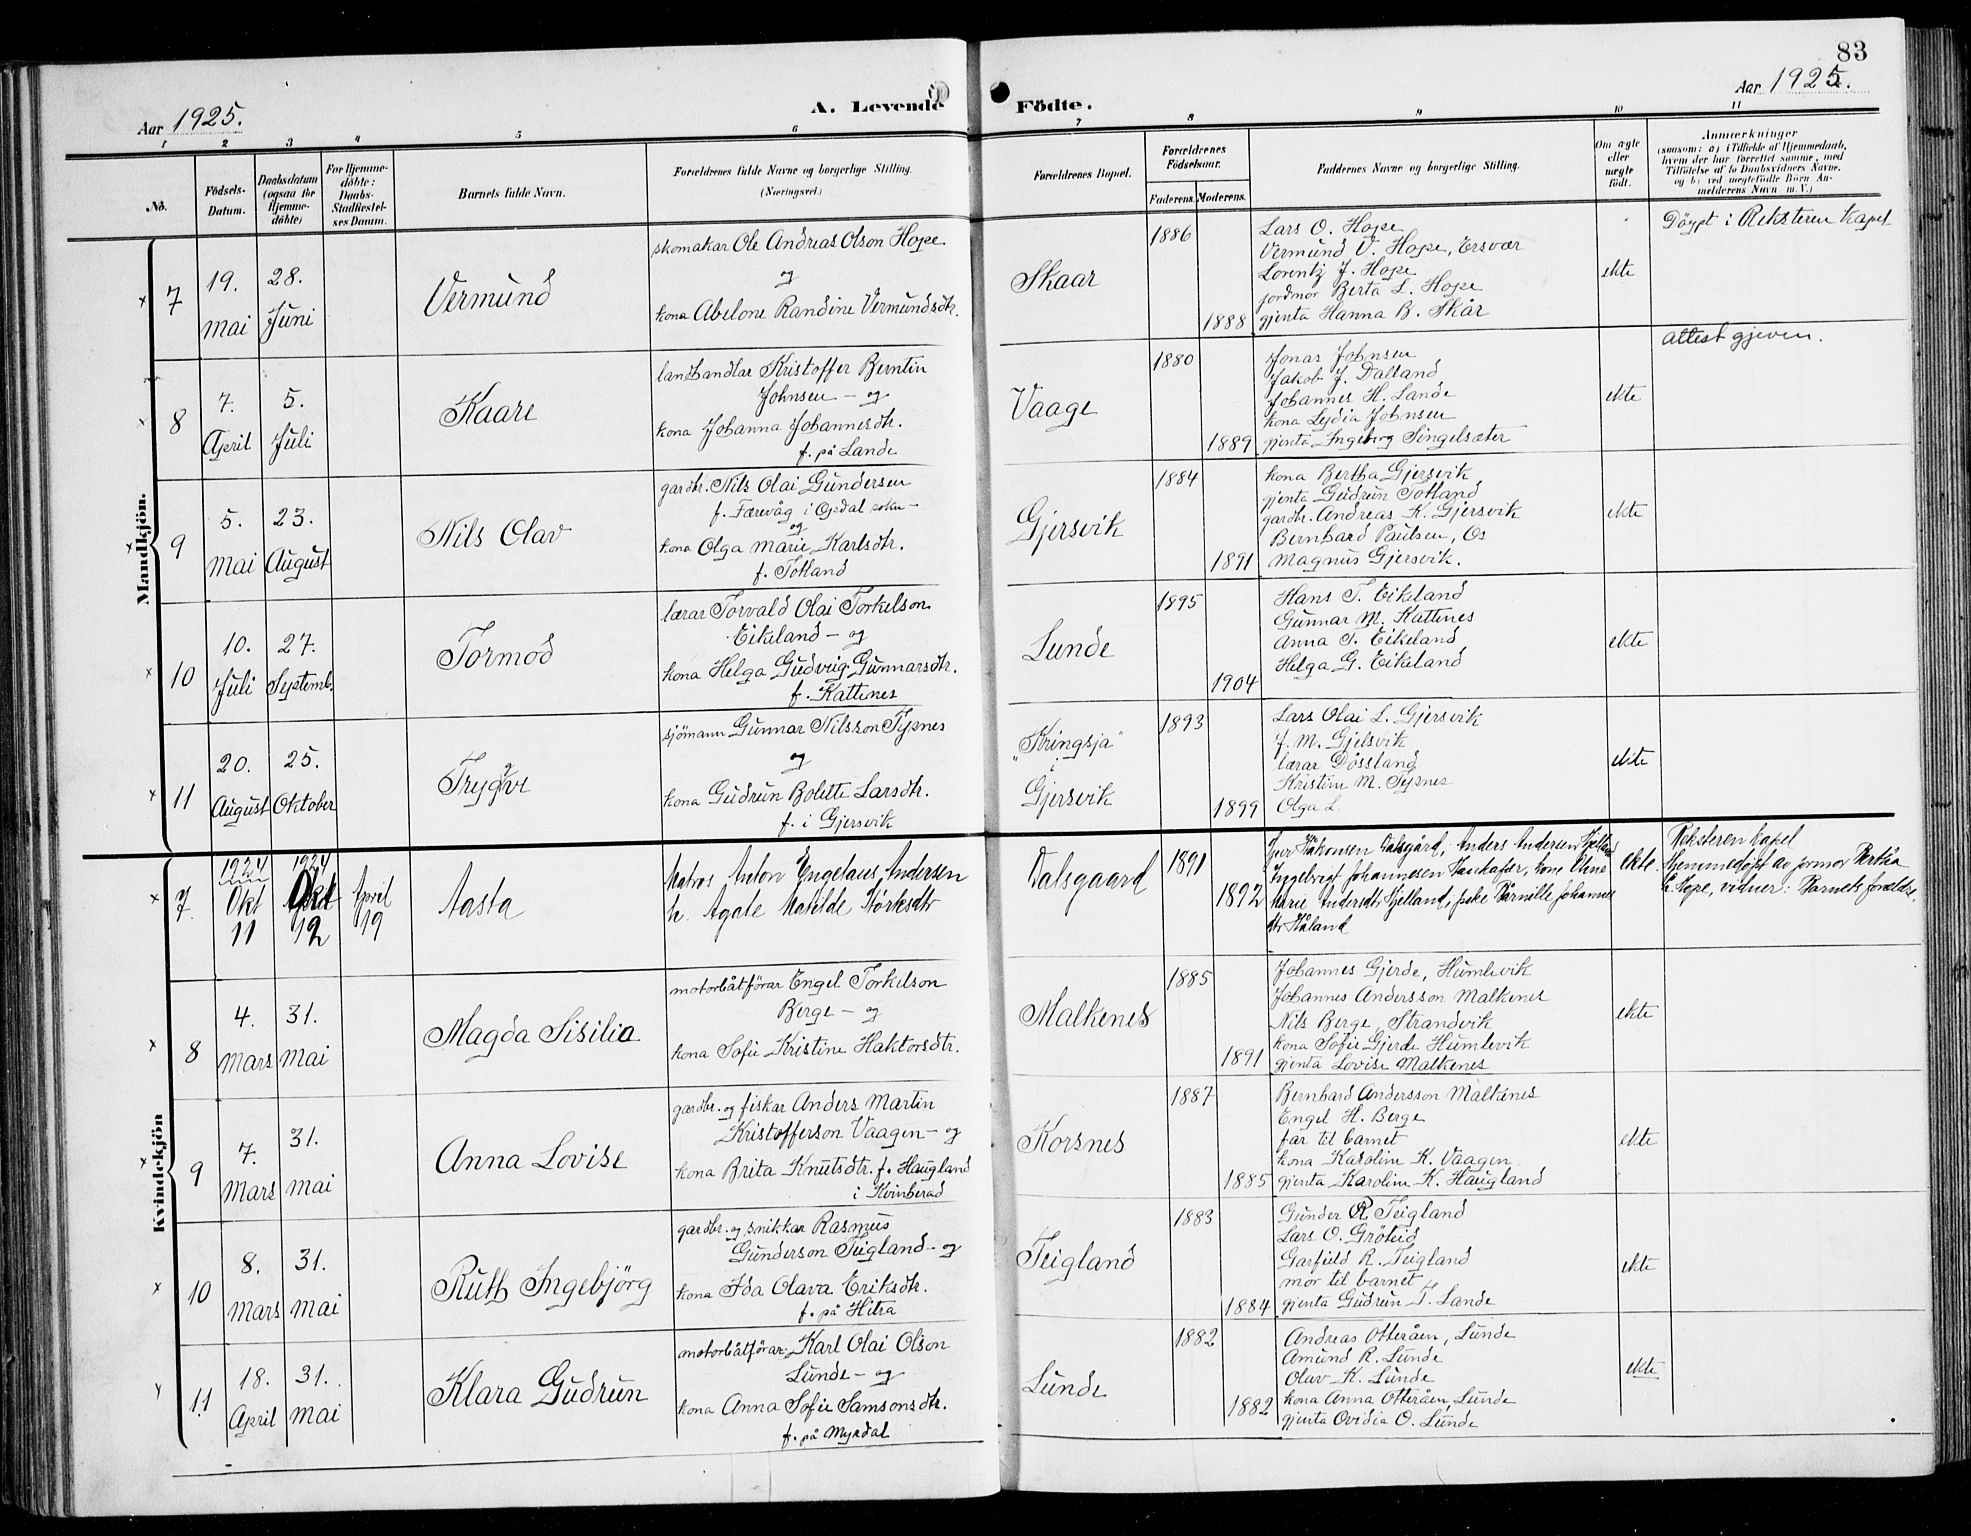 83
Aar 1925.
A. Levende Födte.
Aar 1925.
1 2 3 4 5 6 7 8 9 10 11
No.
Födsels-Datum.
Daabsdatum (ogsaa for Hjemme-döbte)
For Hjemme-döbte: Daabs-Stadfæstel-ses Datum.
Barnets fulde Navn.
Forældrenes fulde Navne og borgerlige Stilling.
(Næringsvei.)
Forældrenes Bopæl.
Forældrenes Födselsaar.
Faderens. Moderens.
Faddernes Navne og borgerlige Stilling.
Om ægte eller uægte födt.
Anmærkninger
(saasom: a) i Tilfælde af Hjemmedaab, hvem der har forrettet samme, med Tilföielse af to Daabsvidners Navne, og b) ved uægtefödte Börn An-melderens Navn m. V.)
Mandkjön.
7
19. Mai
28. Juni
Vermund
skomakar Ole Andreas Olson Hope
og
kona Abelone Randine Vermundsdtr.
Skaar
1886
1888
Lars O. Hope
Vermund V. Hope, Ersvær
Lorentz J. Hope
jordmor Berta L. Hope
gjenta Hanna B. Skår
ekte
Döypt i Reksteren kapel
8
7. April
5. Juli
Kaare
landhandlar Kristoffer Berntin
Johnsen - og
kona Johanna Johannesdtr.
f. på Lande
Vaage
1880
1889
Jonas Johnsen
Jakob J. Dalland
Johannes H. Lande
kona Lydia Johnsen
gjenta Ingeborg Singelsæter
ekte
attest gjeven.
9
5. Mai
23. August
Nils Olav
gardbr. Nils Olai Gundersen
f. Færevåg i Opdal sokn -
og
kona Olga Marie Karlsdtr.
f. Totland
Gjersvik
1884
1891
kona Bertha Gjersvik
gjenta Gudrun Totland
gardbr. Andreas K. Gjersvik
Bernhard Paulsen, Os
Magnus Gjersvik.
ekte
10
10. Juli
27. Septemb.
Tormod
lærar Torvald Olai Torkelson
Eikeland - og
kona Helga Gudveig Gunnarsdtr.
f. Kattenes
Lunde
1895
1904
Hans T. Eikeland
Gunnar M. Kattnes
Anna T. Eikeland
Helga G. Eikeland
ekte
11
20. August
25. Oktober
Trygve
sjömann Gunnar Nilsson Tysnes
og
kona Gudrun Bolette Larsdtr.
f. i Gjersvik
"Kringsja"
i
Gjersvik
1893
1899
Lars Olai L. Gjersvik
J. M. Gjelsvik
lærar Døssland
Kristine M. Tysnes
Olga L.
ekte
Kvindekjön
7.
1924 Okt 11
1924 Okt 12
April 19
Aasta
Matros Anton Engelaus Andersen
k. Agate Matilde Størksdtr
Dalsgaard
1891
1892
Ivar Håkonsen Dalsgård, Anders Andersen Hjelland
Ingebrigt Johannesen Haukafær, kone Eline
Marie Andersdtr Hjelland, pike Pernille Johannes
dtr Håland
ekte.
Reksteren kapel
Hjemmedöpt av jormor Bertha
L. Hope, vidner: Barnets forældre.
8
4. Mars
31. Mai
Magda Sisilia
motorbåtförar Engel Torkelson
Berge - og
kona Sofie Kristine Haktorsdtr.
Malkenes
1885
1891
Johannes Gjerde, Humlevik
Johannes Andersson Malkenes
Nils Berge, Strandvik
kona Sofie Gjerde Humlevik
gjenta Lovise Malkenes
ekte
9
7. Mars
31. Mai
Anna Lovise
gardbr. og fiskar Anders Martin
Kristofferson Vaagen - og
kona Brita Knutsdtr. f. Haugland
i Kvinherad
Korsnes
1887
1885
Bernhard Andersson Malkenes
Engel H. Berge
far til barnet
kona Karoline K. Vaagen
gjenta Karoline K. Haugland
ekte
10
8. Mars
31. Mai
Ruth Ingebjörg
gardbr. og snikkar Rasmus
Gunderson Teigland - og
kona Ida Olava Eriksdtr.
f. på Hitra
Teigland
1883
1884
Gunder R. Teigland
Lars O. Gröteid
Garfield R. Teigland
mor til barnet
gjenta Gudrun T. Lande
ekte
11
18. April
31. Mai
Klara Gudrun
motorbåtförar Karl Olai Olson
Lunde - og
kona Anna Sofie Samsonsdtr.
f. på Myrdal
Lunde
1882
1882
Andreas Otteråen, Lunde
Amund R. Lunde
Olav K. Lunde
kona Anna Otteråen, Lunde
gjenta Ovidia O. Lunde
ekte